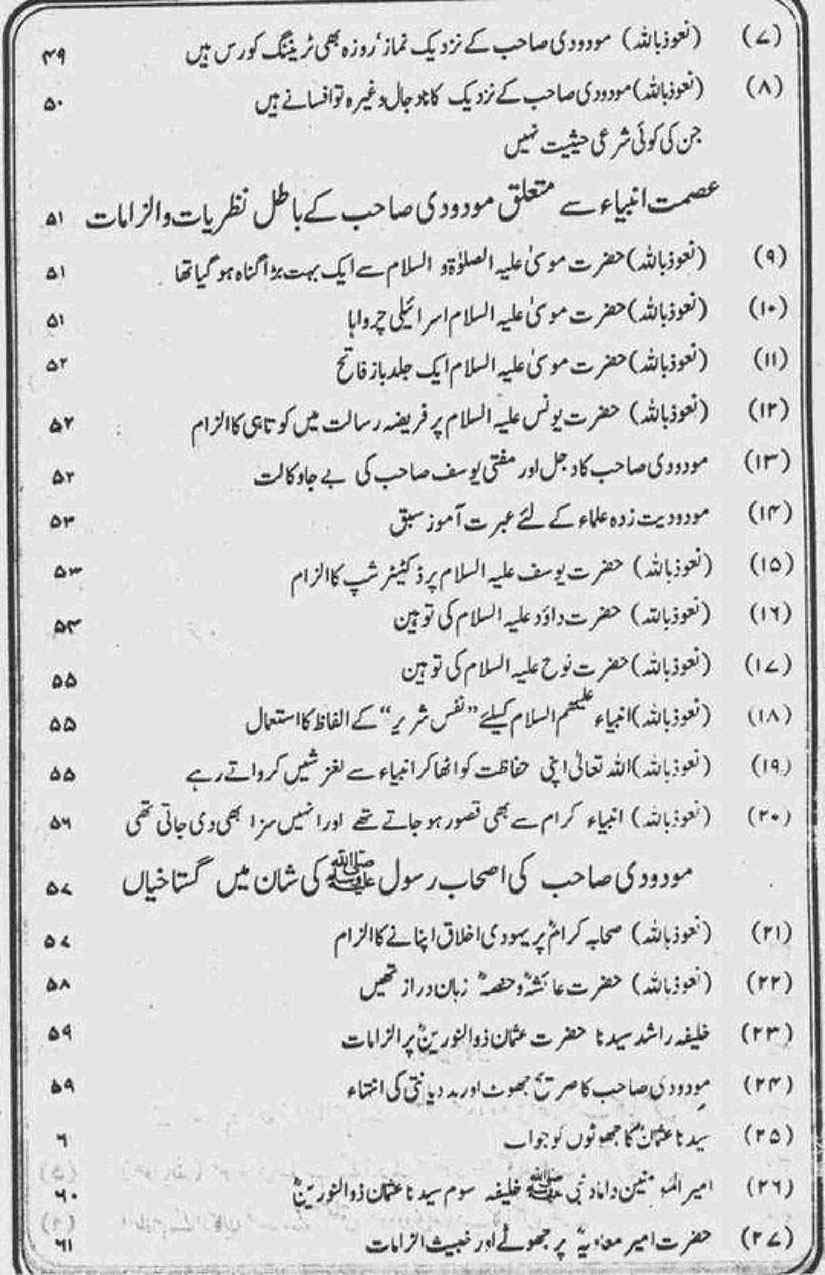 (۷) (نعوذ باللہ) مودودی صاحب کے نزدیک نماز‘ روزہ بھی ٹریننگ کورس ہیں ۴۹
(۸) (نعوذ باللہ) مودودی صاحب کے نزدیک کانا دجال وغیرہ تو افسانے ہیں ۵۰
جن کی کوئی شرعی حیثیت نہیں
عصمت انبیاء سے متعلق مودودی صاحب کے باطل نظریات و الزامات ۵۱
(۹) (نعوذ باللہ) حضرت موسیٰ علیہ الصلوٰۃ و السلام سے ایک بہت بڑا گناہ ہو گیا تھا ۵۱
(۱۰) (نعوذ باللہ) حضرت موسیٰ علیہ السلام اسرائیلی چرواہا ۵۱
(۱۱) (نعوذ باللہ) حضرت موسیٰ علیہ السلام ایک جلد باز فاتح ۵۲
(۱۲) (نعوذ باللہ) حضرت یونس علیہ السلام پر فریضہ رسالت میں کوتاہی کا الزام ۵۲
(۱۳) مودودی صاحب کا دجل اور مفتی یوسف صاحب کی بے جا وکالت ۵۲
(۱۴) مودودیت زدہ علماء کے لئے عبرت آموز سبق ۵۳
(۱۵) (نعوذ باللہ) حضرت یوسف علیہ السلام پر ڈکٹیٹر شپ کا الزام ۵۳
(۱۶) (نعوذ باللہ) حضرت داؤد علیہ السلام کی توہین ۵۴
(۱۷) (نعوذ باللہ) حضرت نوح علیہ السلام کی توہین ۵۵
(۱۸) (نعوذ باللہ) انبیاء علیھم السلام کیلئے ”نفس شریر“ کے الفاظ کا استعمال ۵۵
(۱۹) (نعوذ باللہ) اللہ تعالیٰ اپنی حفاظت کو اٹھا کر انبیاء سے لغزشیں کرواتے رہے ۵۵
(۲۰) (نعوذ باللہ) انبیاء کرام سے بھی قصور ہو جاتے تھے اور انہیں سزا بھی دی جاتی تھی ۵۶
مودودی صاحب کی اصحاب رسول ﷺ کی شان میں گستاخیاں ۵۷
(۲۱) (نعوذ باللہ) صحابہ کرامؓ پر یہودی اخلاق اپنانے کا الزام ۵۷
(۲۲) (نعوذ باللہ) حضرت عائشہؓ و حفصہؓ زبان دراز تھیں ۵۸
(۲۳) خلیفہ راشد سیدنا حضرت عثمان ذوالنورینؓ پر الزامات ۵۹
(۲۴) مودودی صاحب کا صریح جھوٹ اور بد دیانتی کی انتہاء ۵۹
(۲۵) سیدنا عثمانؓ کا جھوٹوں کو جواب ۶
(۲۶) امیر المومنین داماد نبی ﷺ خلیفہ سوم سیدنا عثمان ذوالنورینؓ ۶۰
(۲۷) حضرت امیر معاویہؓ پر جھوٹے اور خبیث الزامات ۶۱